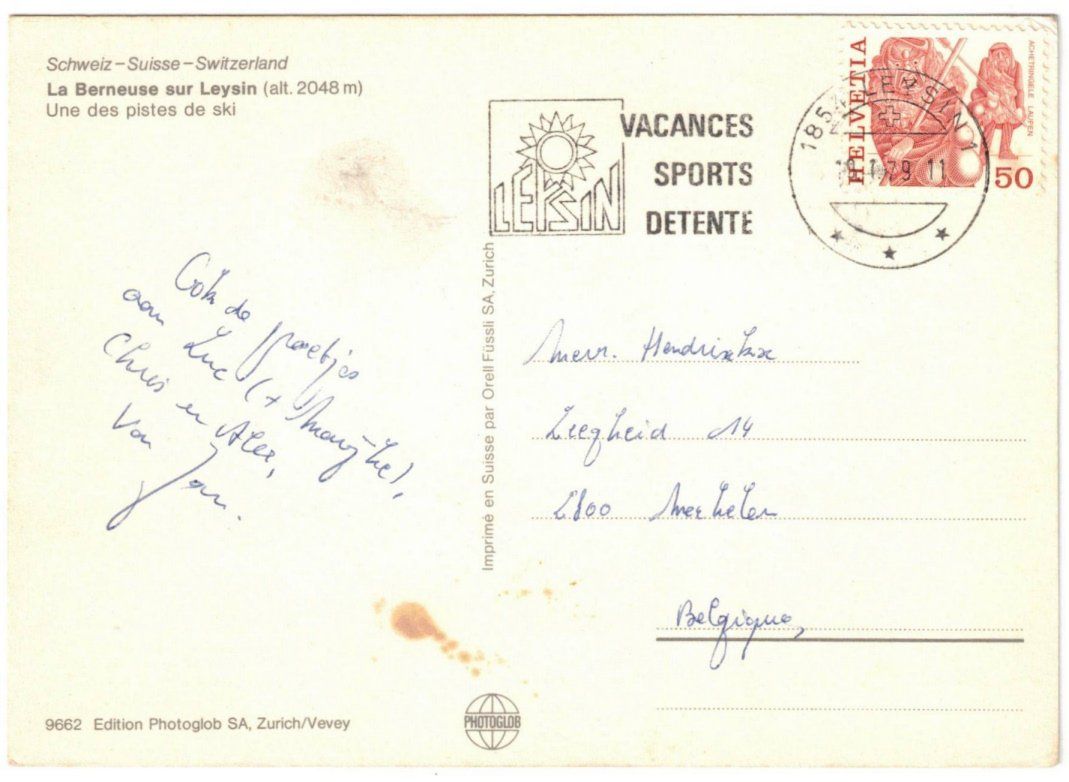 Schweiz – Suisse – Switzerland
La Berneuse sur Leysin (alt. 2048 m)
Une des pistes de ski
LEYSIN
VACANCES
SPORTS
DETENTE
1854 LEYSIN 1
79 11
HELVETIA
ACHETRINGELE LAUPEN
50
Imprimé en Suisse par Orell Füssli SA, Zurich
Ook de groetjes
aan Luc (+ Marijke),
Chris en Alex,
Van Jan.
Mevr. Hendrickx
Leegheid 14
2800 Mechelen
Belgique,
9662 Edition Photoglob SA, Zurich/Vevey
PHOTOGLOB